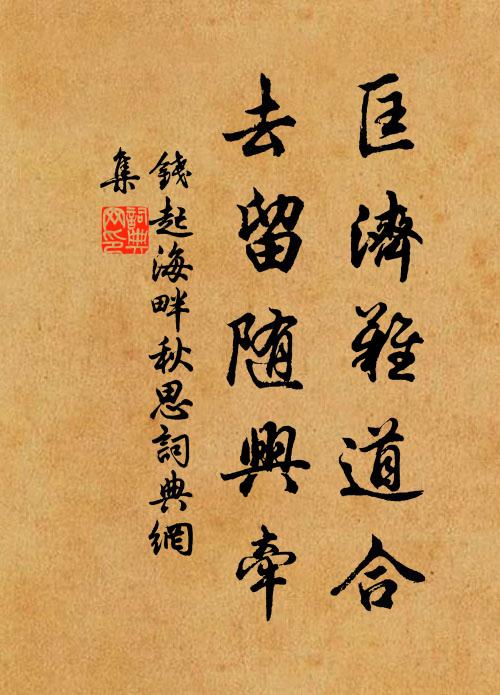 匡濟難道合
去留随興牽
錢起海畔秋思詞典網
集
詞典
网印